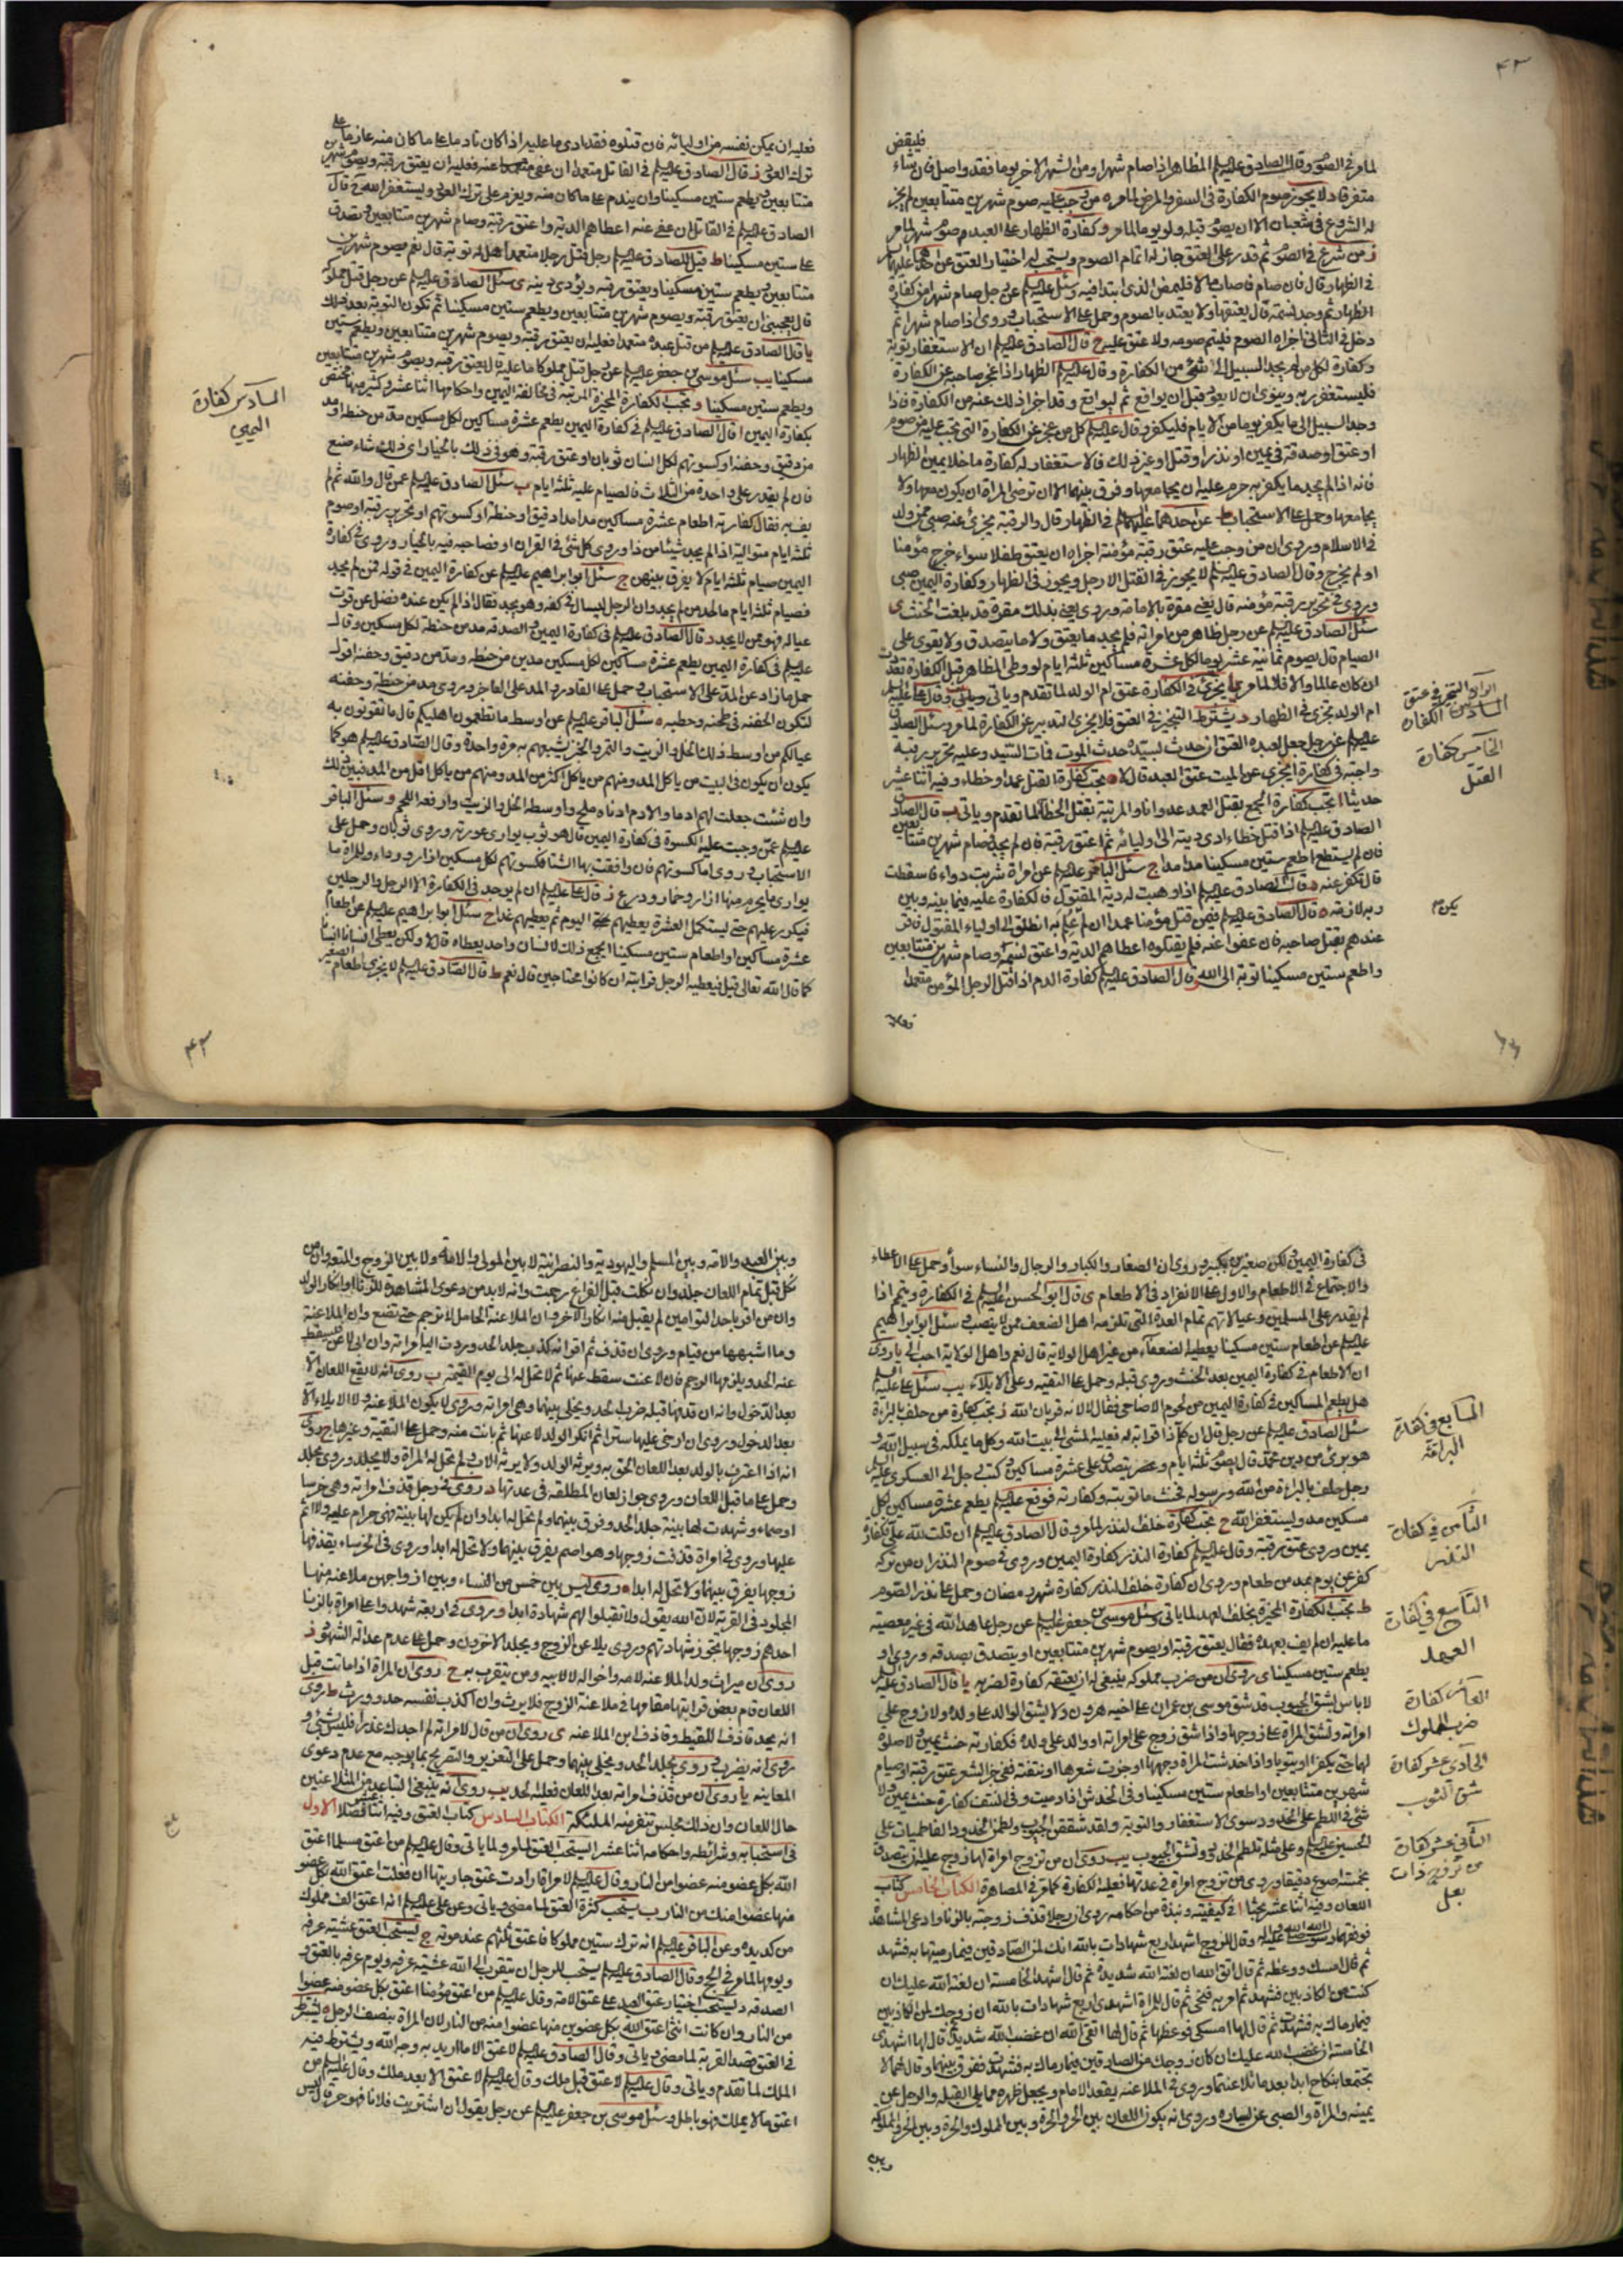 فليقض
لما مر في الصوم وقال الصادق عليه السلم المظاهر اذا صام شهرا ومن الشهر الاخر يوما فقد واصل فان شاء
متفرقا د لا يجوز صوم الكفارة في السفر والمرض لما مر ه من وجب عليه صوم شهرين متتابعين لم يجز
له الشروع في شعبان الا ان يصوم قبله ولو يوما لما مر و كفارة الظهار على العبد صوم شهر لما مر
ز من شرع في الصوم ثم قدر على العتق جاز له اتمام الصوم ويستحب له اختيار العتق عن احدهما عليهما
في الظهار قال فان صام فاصاب مالا فليمض الذي ابتدا فيه وسئل عليه السلم عن رجل صام شهرا من كفارة
الظهار ثم وجد نسمة قال يعتقها ولا يعتد بالصوم وحمل على الاستحباب وروى اذا صام شهرا ثم
دخل في الثاني اجزاه الصوم فليتم صومه ولا عتق عليه ح قال الصادق عليه السلم ان الاستغفار توبة
وكفارة لكل من لم يجد السبيل الى شئ من الكفارة وقال عليه السلم الظهار اذا عجز صاحبه عن الكفارة
فليستغفر ربه وينوي ان لا يعود قبل ان يواقع ثم ليواقع وقد اجزا ذلك عنه من الكفارة فاذا
وجد السبيل الى ما يكفر يوما من الايام فليكفر وقال عليه السلم كل من عجز عن الكفارة التي تجب عليه من صوم
او عتق او صدقة في يمين او نذر او قتل او غير ذلك فالاستغفار له كفارة ما خلا يمين الظهار
فانه اذا لم يجد ما يكفر به حرم عليه ان يجامعها وفرق بينهما الا ان ترضى المراة ان يكون معها ولا
يجامعها وحمل على الاستحباب ط عن احدهما عليهما السلم في الظهار قال والرقبة يجزئ عنه صبي ممن ولد
في الاسلام وروى ان من وجب عليه عتق رقبة مؤمنة اجزاه ان يعتق طفلا سواء خرج مؤمنا
او لم يخرج وقال الصادق عليه السلم لا يجوز في القتل الا رجل ويجوز في الظهار وكفارة اليمين صبي
وروى في تحرير رقبة مؤمنة قال يعني مقرة بالامامة وروى يعني بذلك مقرة قد بلغت الحنث ى
سئل الصادق عليه السلم عن رجل ظاهر من امراته فلم يجد ما يعتق ولا ما يتصدق ولا يقوى على
الصيام قال يصوم ثمانية عشر يوما لكل عشرة مساكين ثلثة ايام
ان كان عالما والا فلا لما مر يا يجزئ في الكفارة عتق ام الولد لما تقدم وياتي
ام الولد تجزى في الظهار يشترط التنجيز في العتق فلا يجزئ التدبير عن الكفارة لما مر وسئل الصادق
عليه السلم عن رجل جعل لعبده العتق ان حدث لسيده حدث الموت فمات السيد وعليه تحرير رقبة
واجبة في كفارة ايجزى عن الميت عتق العبد قال لا ه تجب كفارة القتل عمدا وخطاء وفيه اثنا عشر
حديثا ا تجب كفارة الجمع بقتل العمد عدوانا والمرتبة بقتل الخطا لما تقدم وياتي ب قال
الصادق عليه السلم اذا قتل خطاء ادى ديته الى اوليائه ثم اعتق رقبة فان لم يجد صام شهرين متتابعين
فان لم يستطع اطعم ستين مسكينا مدا مدا ج سئل الباقر عليه السلم عن امراة شربت دواء فاسقطت
قال تكفر عنه د قال الصادق عليه السلم اذا وهبت له دية المقتول فالكفارة عليه فيما بينه وبين
ربه لازمة ه قال الصادق عليه السلم فيمن قتل مؤمنا عمدا ان لم علم به انطلق الى اولياء المقتول فاقر
عندهم بقتل صاحبه فان عفوا عنه فلم يقتلوه اعطاهم الدية واعتق نسمة وصام شهرين متتابعين
واطعم ستين مسكينا توبة الى الله و قال الصادق عليه السلم كفارة الدم اذا قتل الرجل المؤمن متعمدا
الخامس كفارة
القتل
فعليه ان يمكن نفسه من اوليائه فان قتلوه فقد ادى ما عليه اذا كان نادما على ما كان منه عازما على
ترك العود ز قال الصادق عليه السلم في القاتل متعمدا ان عفي عنه فعليه ان يعتق رقبة ويصوم شهرين
متتابعين ويطعم ستين مسكينا وان يندم على ما كان منه ويعزم على ترك العود ويستغفر الله ح قال
الصادق عليه السلم في القاتل ان عفي عنه اعطاهم الدية واعتق رقبة وصام شهرين متتابعين وتصدق
على ستين مسكينا ط قيل للصادق عليه السلم رجل قتل رجلا متعمدا هل له توبة قال نعم يصوم شهرين
متتابعين ويطعم ستين مسكينا ويعتق رقبة ويؤدى ديته ى سئل الصادق عليه السلم عن رجل قتل مملوكه
قال يعجبني ان يعتق رقبة ويصوم شهرين متتابعين ويطعم ستين مسكينا ثم تكون التوبة بعد ذلك
يا قال الصادق عليه السلم من قتل عبده متعمدا فعليه ان يعتق رقبة ويصوم شهرين متتابعين ويطعم ستين
مسكينا يب سئل موسى بن جعفر عليه السلم عن رجل قتل مملوكا ما عليه قال يعتق رقبة ويصوم شهرين متتابعين
ويطعم ستين مسكينا و تجب الكفارة المخيرة المرتبة في مخالفة اليمين واحكامها اثنا عشر
بكفارة اليمين ا قال الصادق عليه السلم في كفارة اليمين يطعم عشرة مساكين لكل مسكين مد من حنطة او مد
من دقيق وحفنة او كسوتهم لكل انسان ثوبان او عتق رقبة وهو في ذلك بالخيار اى ذلك شاء صنع
فان لم يقدر على واحدة من الثلاث فالصيام عليه ثلثة ايام ب سئل الصادق عليه السلم عمن قال والله ثم لم
يف به فقال كفارته اطعام عشرة مساكين مدا مدا دقيق او حنطة او كسوتهم او تحرير رقبة او صوم
ثلثة ايام متوالية اذا لم يجد شيئا من ذا وروى كل شئ في القران او فصاحبه فيه بالخيار وروى في كفارة
اليمين صيام ثلثة ايام لا يفرق بينهن ج سئل ابو ابراهيم عليه السلم عن كفارة اليمين في قوله فمن لم يجد
فصيام ثلثة ايام ما حد من لم يجد وان الرجل ليسال في كفه وهو يجد فقال اذا لم يكن عنده فضل عن قوت
عياله فهو ممن لا يجد د قال الصادق عليه السلم في كفارة اليمين والصدقة مد من حنطة لكل مسكين وقال
عليه السلم في كفارة اليمين يطعم عشرة مساكين لكل مسكين مدين من حنطة ومد من دقيق وحفنة اقول
حمل ما زاد عن المد على الاستحباب وحمل على القادر والمد على العاجز وروى مد من حنطة وحفنة
لتكون الحفنة في طحنه وحطبه ه سئل الباقر عليه السلم عن اوسط ما تطعمون اهليكم قال ما تقوتون به
عيالكم من اوسط ذلك الخل والزيت والتمر والخبز يشبعهم به مرة واحدة وقال الصادق عليه السلم هو كما
يكون ان يكون في البيت من ياكل المد ومنهم من ياكل اكثر من المد ومنهم من ياكل اقل من المد فبين ذلك
وان شئت جعلت لهم ادما والادم ادناه ملح واوسطه الخل والزيت وارفعه اللحم و سئل الباقر
عليه السلم عمن وجبت عليه الكسوة في كفارة اليمين قال هو ثوب يوارى عورته وروى ثوبان وحمل على
الاستحباب وروى اما كسوتهم فان وافقت بها الشتا فكسوتهم لكل مسكين ازار ورداء وللمراة ما
يوارى ما يحرم منها ازار وخمار ودرع ز قال على عليه السلم ان لم يوجد في الكفارة الا الرجل والرجلين
فيكرر عليهم حتى يستكمل العشرة يعطيهم اليوم ثم يعطيهم غدا ح سئل ابو ابراهيم عليه السلم عن اطعام
عشرة مساكين او اطعام ستين مسكينا ايجمع ذلك لانسان واحد يعطاه قال لا ولكن يعطى انسانا انسانا
كما قال الله تعالى قيل فيعطيه الرجل قرابته ان كانوا محتاجين قال نعم ط قال الصادق عليه السلم لا يجزى اطعام الصغير
السادس كفارة
اليمين
في كفارة اليمين ولكن صغيرين بكبير وروى ان الصغار والكبار والرجال والنساء سواء وحمل على الاعطاء
والاجتماع في الاطعام والاول على الانفراد في الاطعام ى قال ابو الحسن عليه السلم في الكفارة ويتم اذا
لم يقدر على المسلمين وعيالاتهم تمام العدة التي تلزمه اهل الضعف ممن لا ينصب وسئل ابو ابراهيم
عليه السلم عن اطعام ستين مسكينا يعطيه لضعفاء من غير اهل الولاية قال نعم واهل الولاية احب الى يا روى
ان الاطعام في كفارة اليمين بعد الحنث وروى قبله وحمل على التقية وعلى الايلاء يب سئل على عليه السلم
هل يطعم المساكين في كفارة اليمين من لحوم الاضاحى فقال لا لانه قربان الله ز تجب كفارة من حلف بالبراءة
سئل الصادق عليه السلم عن رجل قال ان كلم ذا قرابة له فعليه المشي الى بيت الله وكل ما يملكه في سبيل الله و
هو برئ من دين محمد قال يصوم ثلثة ايام ويتصدق على عشرة مساكين وكتب رجل الى العسكرى عليه السلم
رجل حلف بالبراءة من الله ورسوله فحنث ما توبته وكفارته فوقع عليه السلم يطعم عشرة مساكين لكل
مسكين مد ويستغفر الله ح تجب كفارة خلف النذر لما مر وقال الصادق عليه السلم ان قلت لله على فكفارة
يمين وروى عتق رقبة وقال عليه السلم كفارة النذر كفارة اليمين وروى في صوم النذر ان من تركه
كفر عن يوم بمد من طعام وروى ان كفارة خلف النذر كفارة شهر رمضان وحمل على نذر الصوم
ط تجب الكفارة المخيرة بخلف العهد لما ياتى وسئل موسى بن جعفر عليه السلم عن رجل عاهد الله في غير معصية
ما عليه ان لم يف بعهده فقال يعتق رقبة او يصوم شهرين متتابعين او يتصدق بصدقة وروى او
يطعم ستين مسكينا ى روى ان من ضرب مملوكه ينبغى له ان يعتقه كفارة لضربه يا قال الصادق عليه السلم
لا باس بشق الجيوب قد شق موسى بن عمران على اخيه هرون ولا يشق الوالد على ولده ولا زوج على
امراته وتشق المراة على زوجها واذا شق زوج على امراته او والد على ولده فكفارته حنث يمين ولا صلوة
لهما حتى يكفرا او يتوبا واذا خدشت المراة وجهها او جزت شعرها او نتفته ففي جز الشعر عتق رقبة او صيام
شهرين متتابعين او اطعام ستين مسكينا وفي الخدش اذا دميت وفي النتف كفارة حنث يمين ولا
شئ في اللطم على الخدود سوى الاستغفار والتوبة ولقد شققن الجيوب ولطمن الخدود الفاطميات على
الحسين عليه السلم وعلى مثله تلطم الخدود وتشق الجيوب يب روى ان من تزوج امراة لها زوج عليه ان يتصدق
بخمسة اصوع دقيقا وروى من تزوج امراة في عدتها فعليه الكفارة كما مر في المصاهرة الكتاب الخامس كتاب
اللعان وفيه اثنا عشر بحثا ا في كيفيته ونبذة من احكامه روى ان رجلا قذف زوجته بالزنا وادعى المشاهدة
فوقفهما رسول الله صلى الله عليه واله وقال للزوج اشهد اربع شهادات بالله انك لمن الصادقين فيما رميتها به فشهد
ثم قال امسك ووعظه ثم قال اتق الله ان لعنة الله شديدة ثم قال اشهد الخامسة ان لعنة الله عليك ان
كنت من الكاذبين فشهد ثم امر به فنحى ثم قال للمراة اشهدى اربع شهادات بالله ان زوجك لمن الكاذبين
فيما رماك به فشهدت ثم قال لها امسكى فوعظها ثم قال لها اتقى الله ان غضب الله شديد ثم قال لها اشهدى
الخامسة ان غضب الله عليك ان كان زوجك من الصادقين فيما رماك به فشهدت ففرق بينهما وقال لهما لا
تجتمعا بنكاح ابدا بعد ما تلاعنتما وروى في الملاعنة يقعد الامام ويجعل ظهره مما يلى القبلة والرجل عن
يمينه والمراة والصبى عن يساره وروى انه يكون اللعان بين الحر والحرة وبين المملوك والحرة وبين الحر والمملوكة
السابع في كفارة
البراءة
الثامن في كفارة
النذر
التاسع في كفارة
العهد
العاشر كفارة
ضرب المملوك
الحادى عشر كفارة
شق الثوب
الثاني عشر كفارة
من تزوج بذات
بعل
وبين العبد والامة وبين المسلم واليهودية والنصرانية لا بين المولى والامة ولا بين الزوج والمتعة وان من
نكل قبل تمام اللعان جلد وان نكلت قبل الفراغ رجمت وانه لا بد من دعوى المشاهدة للزنا او انكار الولد
وان من اقر باحد التوامين لم يقبل منه انكار الاخر وان الملاعنة الحامل لا ترجم حتى تضع وان الملاعنة
وما اشبهها من قيام وروى ان قذف ثم اقر انه كذب جلد الحد وردت اليه امراته وان ابى لاعن فيسقط
عنه الحد ويلزمها الرجم فان لاعنت سقط عنها ثم لا تحل له الى يوم القيمة ب روى انه لا يقع اللعان الا
بعد الدخول وانه ان قذفها قبله ضرب الحد ويخلى بينهما وهى امراته وروى لا يكون الملاعنة ولا الايلاء الا
بعد الدخول وروى ان ارخى عليها سترا ثم انكر الولد لاعنها ثم بانت منه وحمل على التقية وغيرها ج روى
انه اذا اعترف بالولد بعد اللعان الحق به ويرثه الولد ولا يرثه الاب ولم تحل له المراة ولا يجلد وروى يجلد
وحمل على ما قبل اللعان وروى جواز لعان المطلقة في عدتها د روى في رجل قذف امراته وهى خرسا
او صماء وشهدت لها بينة جلد الحد وفرق بينهما ولم تحل له ابدا وان لم يكن لها بينة فهى حرام عليه ولا اثم
عليها وروى في امراة قذفت زوجها وهو اصم يفرق بينهما ولا تحل له ابدا وروى في الخرساء يقذفها
زوجها يفرق بينهما ولا تحل له ابدا ه روى ليس بين خمس من النساء وبين ازواجهن ملاعنة منها
المجلود في الفرية لان الله يقول ولا تقبلوا لهم شهادة ابدا و روى في اربعة شهدوا على امراة بالزنا
احدهم زوجها تجوز شهادتهم وروى يلاعن الزوج ويجلد الاخرون وحمل على عدم عدالة الشهود ز
روى ان ميراث ولد الملاعنة لامه واخواله لا لابيه ومن يتقرب به ح روى ان المراة اذا ماتت قبل
اللعان قام بعض قرابتها مقامها في ملاعنة الزوج فلا يرث وان اكذب نفسه حد وورث ط روى
انه يحد قاذف اللقيط وقاذف ابن الملاعنة ى روى ان من قال لامراته لم اجدك عذراء فليس بشئ و
روى انه يضرب وروى يجلد الحد ويخلى بينهما وحمل على التعزير والتصريح بما يوجبه مع عدم دعوى
المعاينة يا روى ان من قذف امراته بعد اللعان فعليه الحد يب روى انه ينبغى التباعد من المتلاعنين
حال اللعان وان ذلك مجلس تنفر منه الملئكة الكتاب السادس كتاب العتق وفيه اثنا عشر فصلا الاول
في استحبابه وشرائطه واحكامه اثنا عشر ا يستحب العتق لما مر ولما ياتى وقال عليه السلم من اعتق مسلما اعتق
الله بكل عضو منه عضوا من النار وقال عليه السلم لامراة ارادت عتق جاريتها ان فعلت اعتق الله بكل عضو
منها عضوا منك من النار ب يستحب كثرة العتق لما مضى وياتى وعن على عليه السلم انه اعتق الف مملوك
من كد يده وعن الباقر عليه السلم انه ترك ستين مملوكا فاعتق ثلثهم عند موته ج يستحب العتق عشية عرفة
ويومها لما مر في الحج وقال الصادق عليه السلم يستحب للرجل ان يتقرب الى الله عشية عرفة ويوم عرفة بالعتق و
الصدقة د يستحب اختيار عتق العبد على عتق الامة وقال عليه السلم من اعتق مؤمنا اعتق بكل عضو منه عضوا
من النار وان كانت انثى اعتق الله بكل عضوين منها عضوا منه من النار لان المراة بنصف الرجل ه يشترط
في العتق قصد القربة لما مضى وياتى وقال الصادق عليه السلم لا عتق الا ما اريد به وجه الله و يشترط فيه
الملك لما تقدم وياتى وقال عليه السلم لا عتق قبل ملك وقال عليه السلم لا عتق الا بعد ملك وقال عليه السلم من
اعتق ما لا يملك فهو باطل وسئل موسى بن جعفر عليه السلم عن رجل يقول ان اشتريت فلانا فهو حر قال ليس